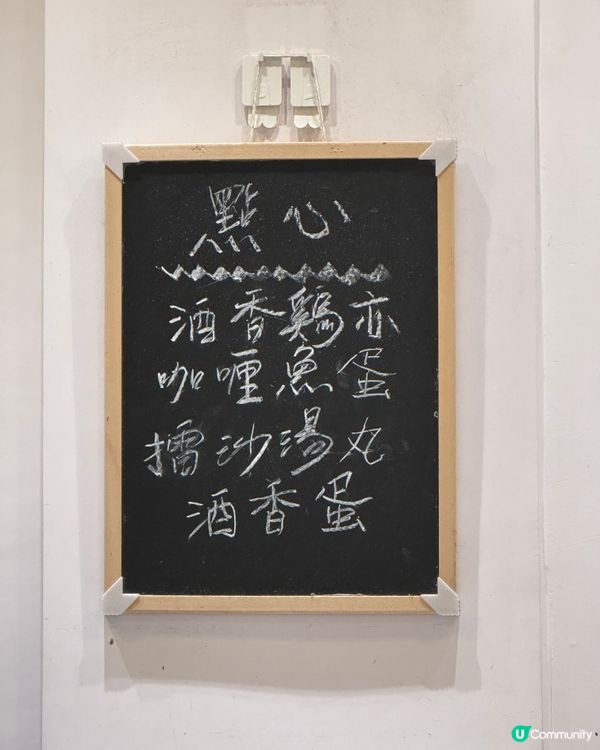 點心
酒香鷄亦
咖喱魚蛋
擂沙湯丸
酒香蛋
U Community